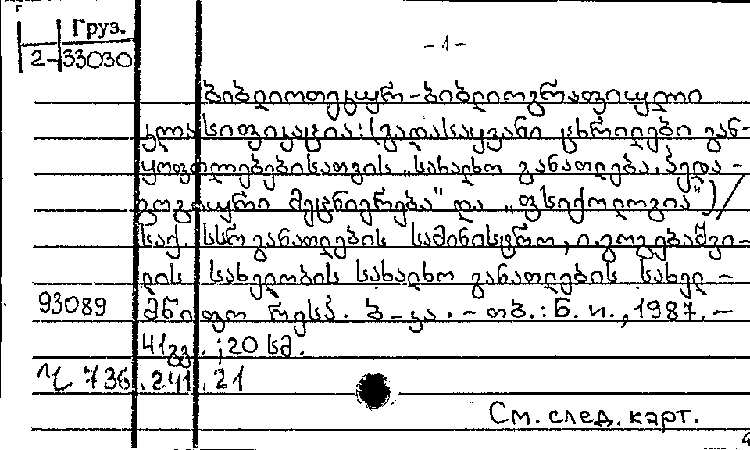 Груз.
2-33030
-1-
ბიბლიოთეკურ-ბიბლიოგრაფიული
კლასიფიკაცია: (გადასაყვანი ცხრილები გან-
ყოფილებებისათვის „სახალხო განათლება. პედა-
გოგიური მეცნიერება" და „ფსიქოლოგია")/
საქ. სსრ განათლების სამინისტრო, ი. გოგებაშვი-
ლის სახელობის სახალხო განათლების სახელ-
93089 მწიფო რესპ. ბ-კა. - თბ.: Б. и., 1987. -
41გვ.; 20 სმ.
736.241.21
См. след. карт.